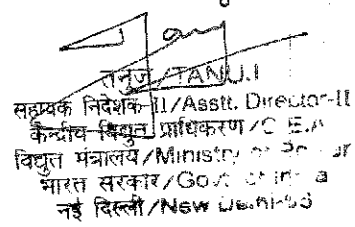 तनुज/TANUJ
सहायक निदेशक-II/Asstt. Director-II
केन्द्रीय विद्युत प्राधिकरण/C.E.A
विद्युत मंत्रालय/Ministry
भारत सरकार/Govt
नई दिल्ली/New Delhi-